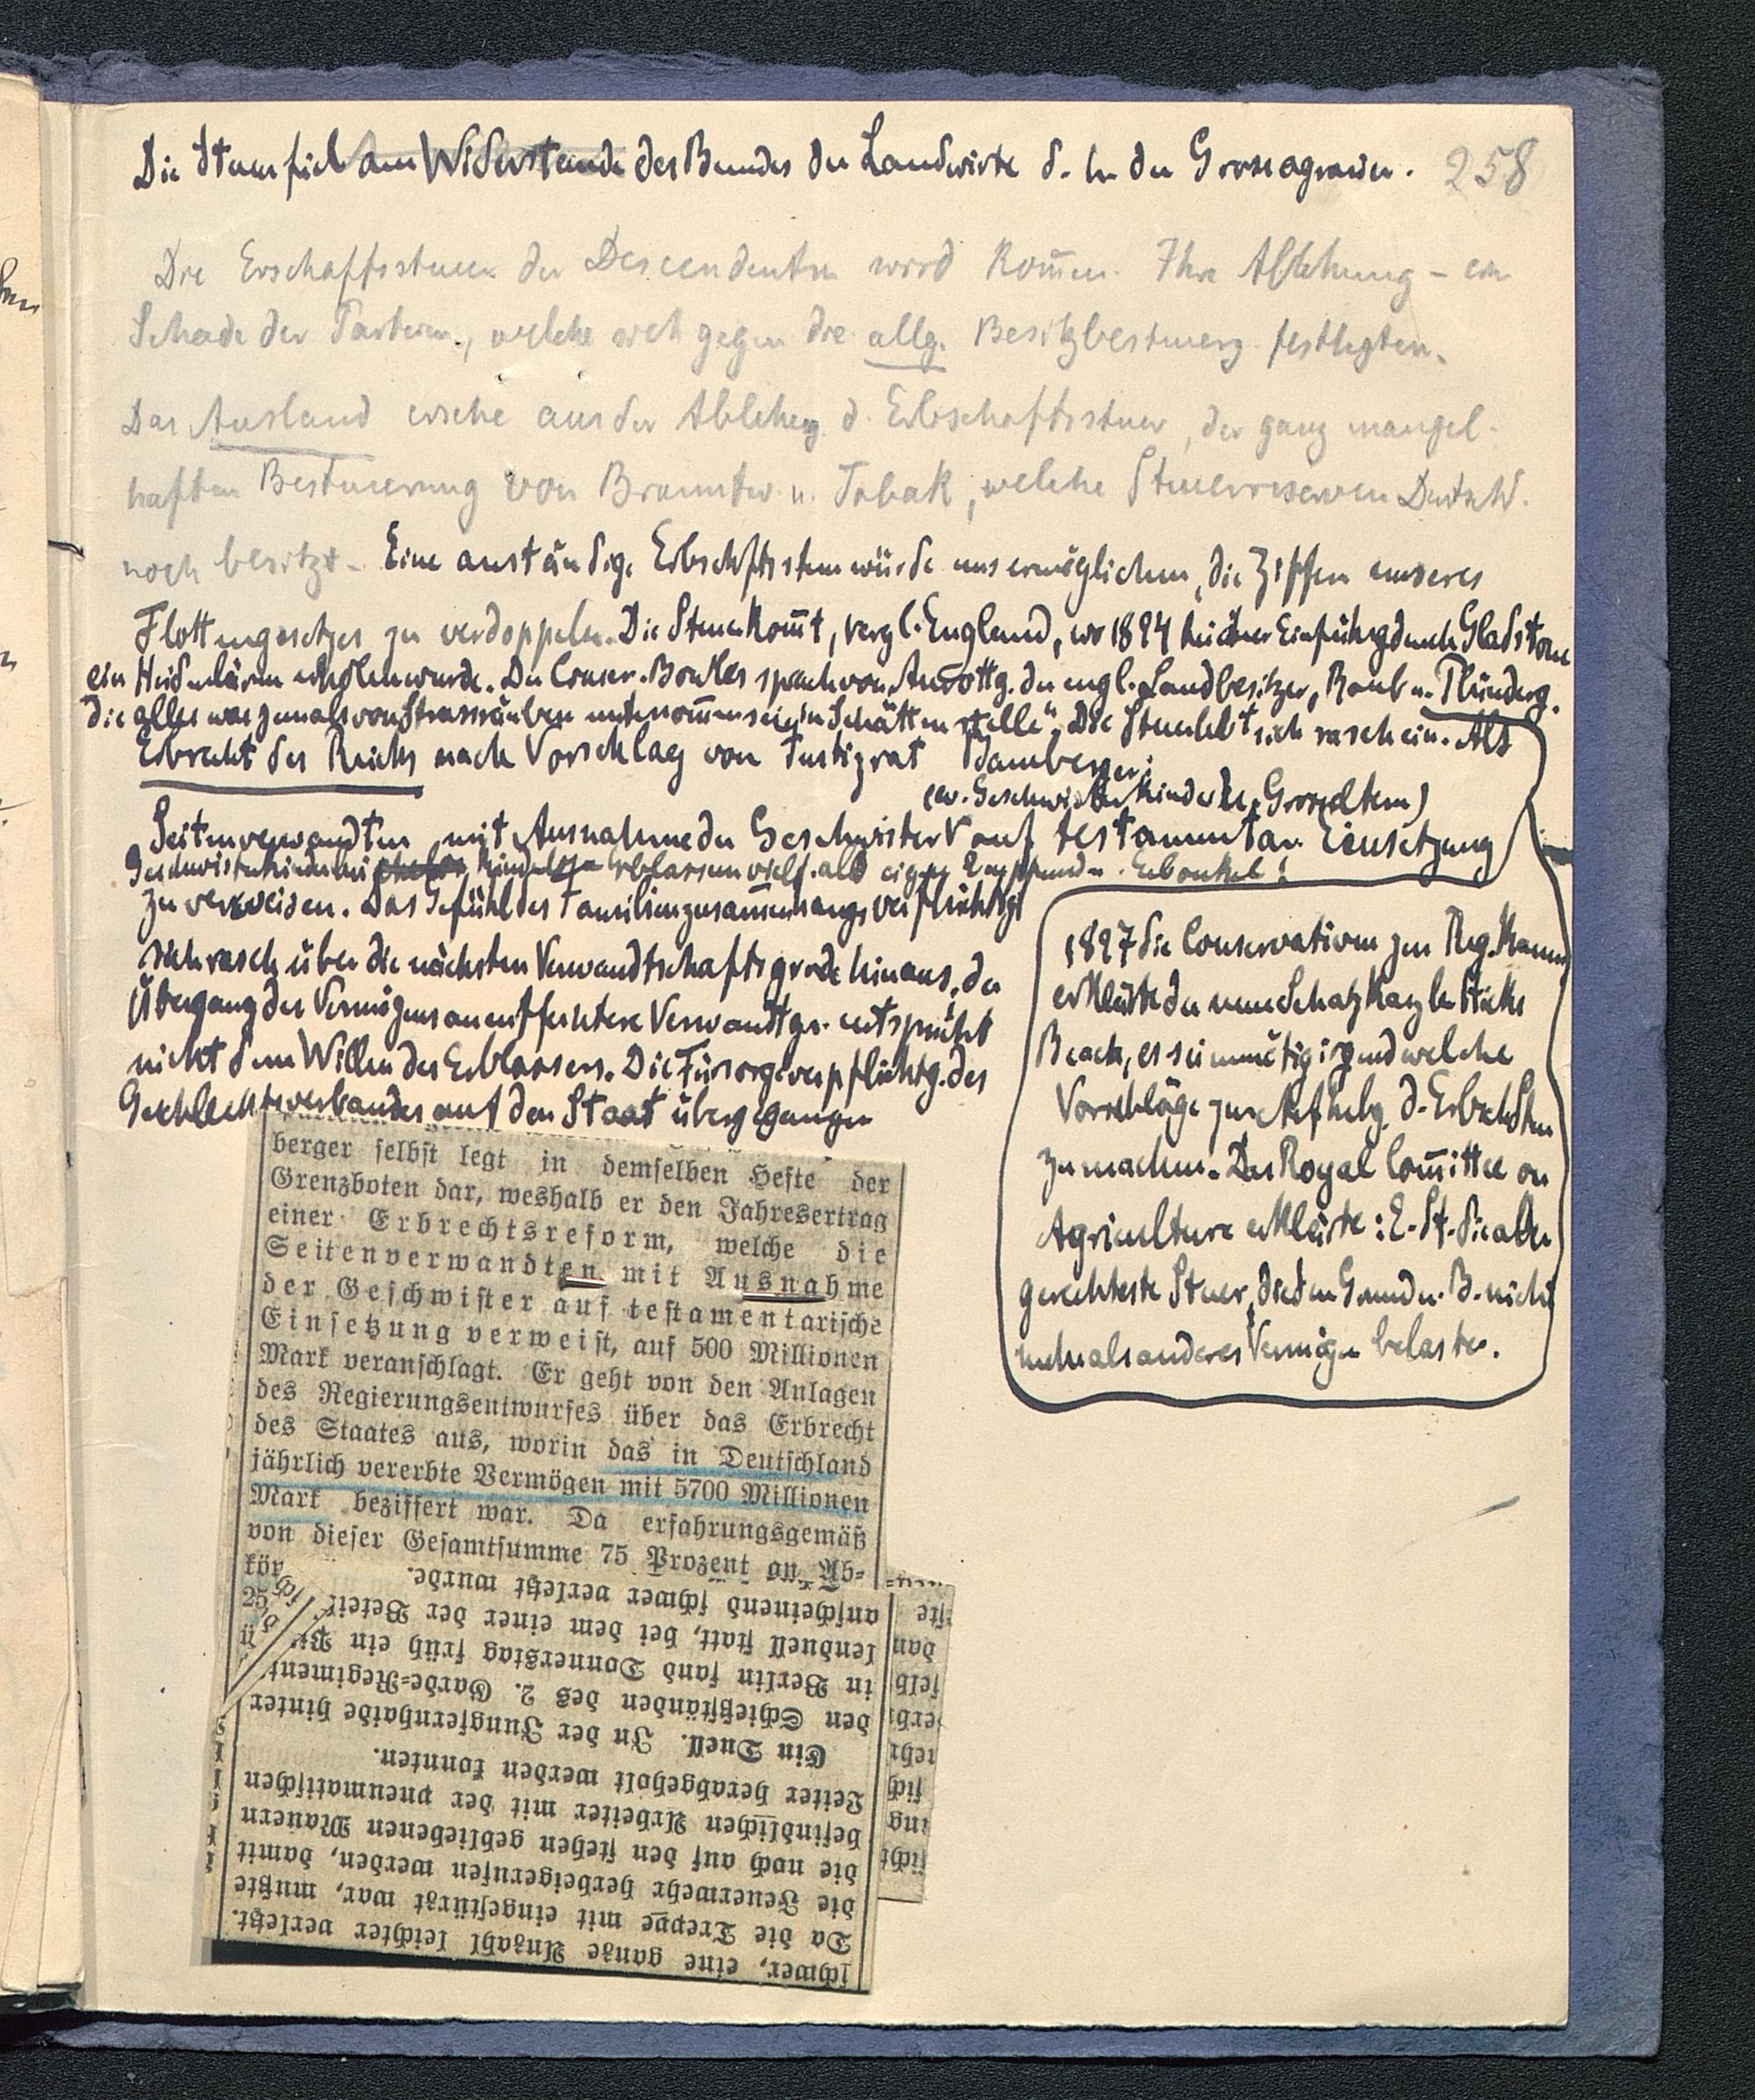 Die Steuer fiel am Widerstande des Bundes der Landwirte d. h. der Grossagrarier.
258
Die Erschaftssteuer der Descendenten wird kom̄en. Ihre Ablehnung – ein
Schade der Parteien, welche sich gegen die allg. Besitzbesteuerg. festlegten.
Das Ausland ersehe aus der Ablehng. d. Erbschaftssteuer, der ganz mangel-
haften Besteuerung von Branntw. u. Tabak, welche Steuerreserven Deutschl.
noch besitzt – Eine anständige Erbschftssteuer würde uns ermöglichen, die Ziffern unseres
Flottengesetzes zu verdoppeln. Die Steuer kom̄t, vergl. England, wo 1894 bei ihrer Einführg durch Gladstone
ein Heidenlärm erhoben wurde. Der Conser. Bowles sprach von Ausrottg. der engl. Landbesitzer, Raub u. Plünderg.
die alles was jemals von Strassräubern unternom̄en sei in Schatten stelle". Die Steuer lebt sich rasch ein. Als
Erbrecht des Reichs nach Vorschlag von Justizrat Bamberger:
(ev. Geschwisterkinder u. Grosseltern)
Seitenverwandten mit Ausnahme der Geschwister auf testamentar. Einsetzung
Geschwisterkinder bei Erblassern vielf. als eigne Erbonkel!
zu verweisen. Das Gefühl des Familienzusam̄enhangs verflüchtigt
sich rasch über die nächsten Verwandtschaftsgrade hinaus, der
Übergang des Vermögens an entferntere Verwandte entspricht
nicht dem Willen des Erblassers. Die Fürsorgeverpflichtg. des
Geschlechtsverbandes auf den Staat übergegangen
1897 die Conservativen zur Reg. kamen
erklärte der neue Schatzkanzler Hicks
Beach, es sei unnötig irgendwelche
Vorschläge zur Aufhebg. d. ErbschSteu
zu machen. Das Royal Com̄ittee on
Agriculture erklärte: E. St. die aller
gerechteste Steuer, die den Grund u. B. nicht
mehr als anderes Vermögen belaste.
berger selbst legt in demselben Hefte der
Grenzboten dar, weshalb er den Jahresertrag
einer Erbrechtsreform, welche die
Seitenverwandten mit Ausnahme
der Geschwister auf testamentarische
Einsetzung verweist, auf 500 Millionen
Mark veranschlagt. Er geht von den Anlagen
des Regierungsentwurfes über das Erbrecht
des Staates aus, worin das in Deutschland
jährlich vererbte Vermögen mit 5700 Millionen
Mark beziffert war. Da erfahrungsgemäß
von dieser Gesamtsumme 75 Prozent an Ab-
kör
25
schwer, eine ganze Anzahl leichter verletzt.
Da die Treppe mit eingestürzt war, mußte
die Feuerwehr herbeigerufen werden, damit
die noch auf den stehen gebliebenen Mauern
befindlichen Arbeiter mit der pneumatischen
Leiter herabgeholt werden konnten.
Ein Duell. In der Jungfernhaide hinter
den Schießständen des 2. Garde-Regiment
in Berlin fand Donnerstag früh ein
lenduell statt, bei dem einer der Beteil
anscheinend schwer verletzt wurde.